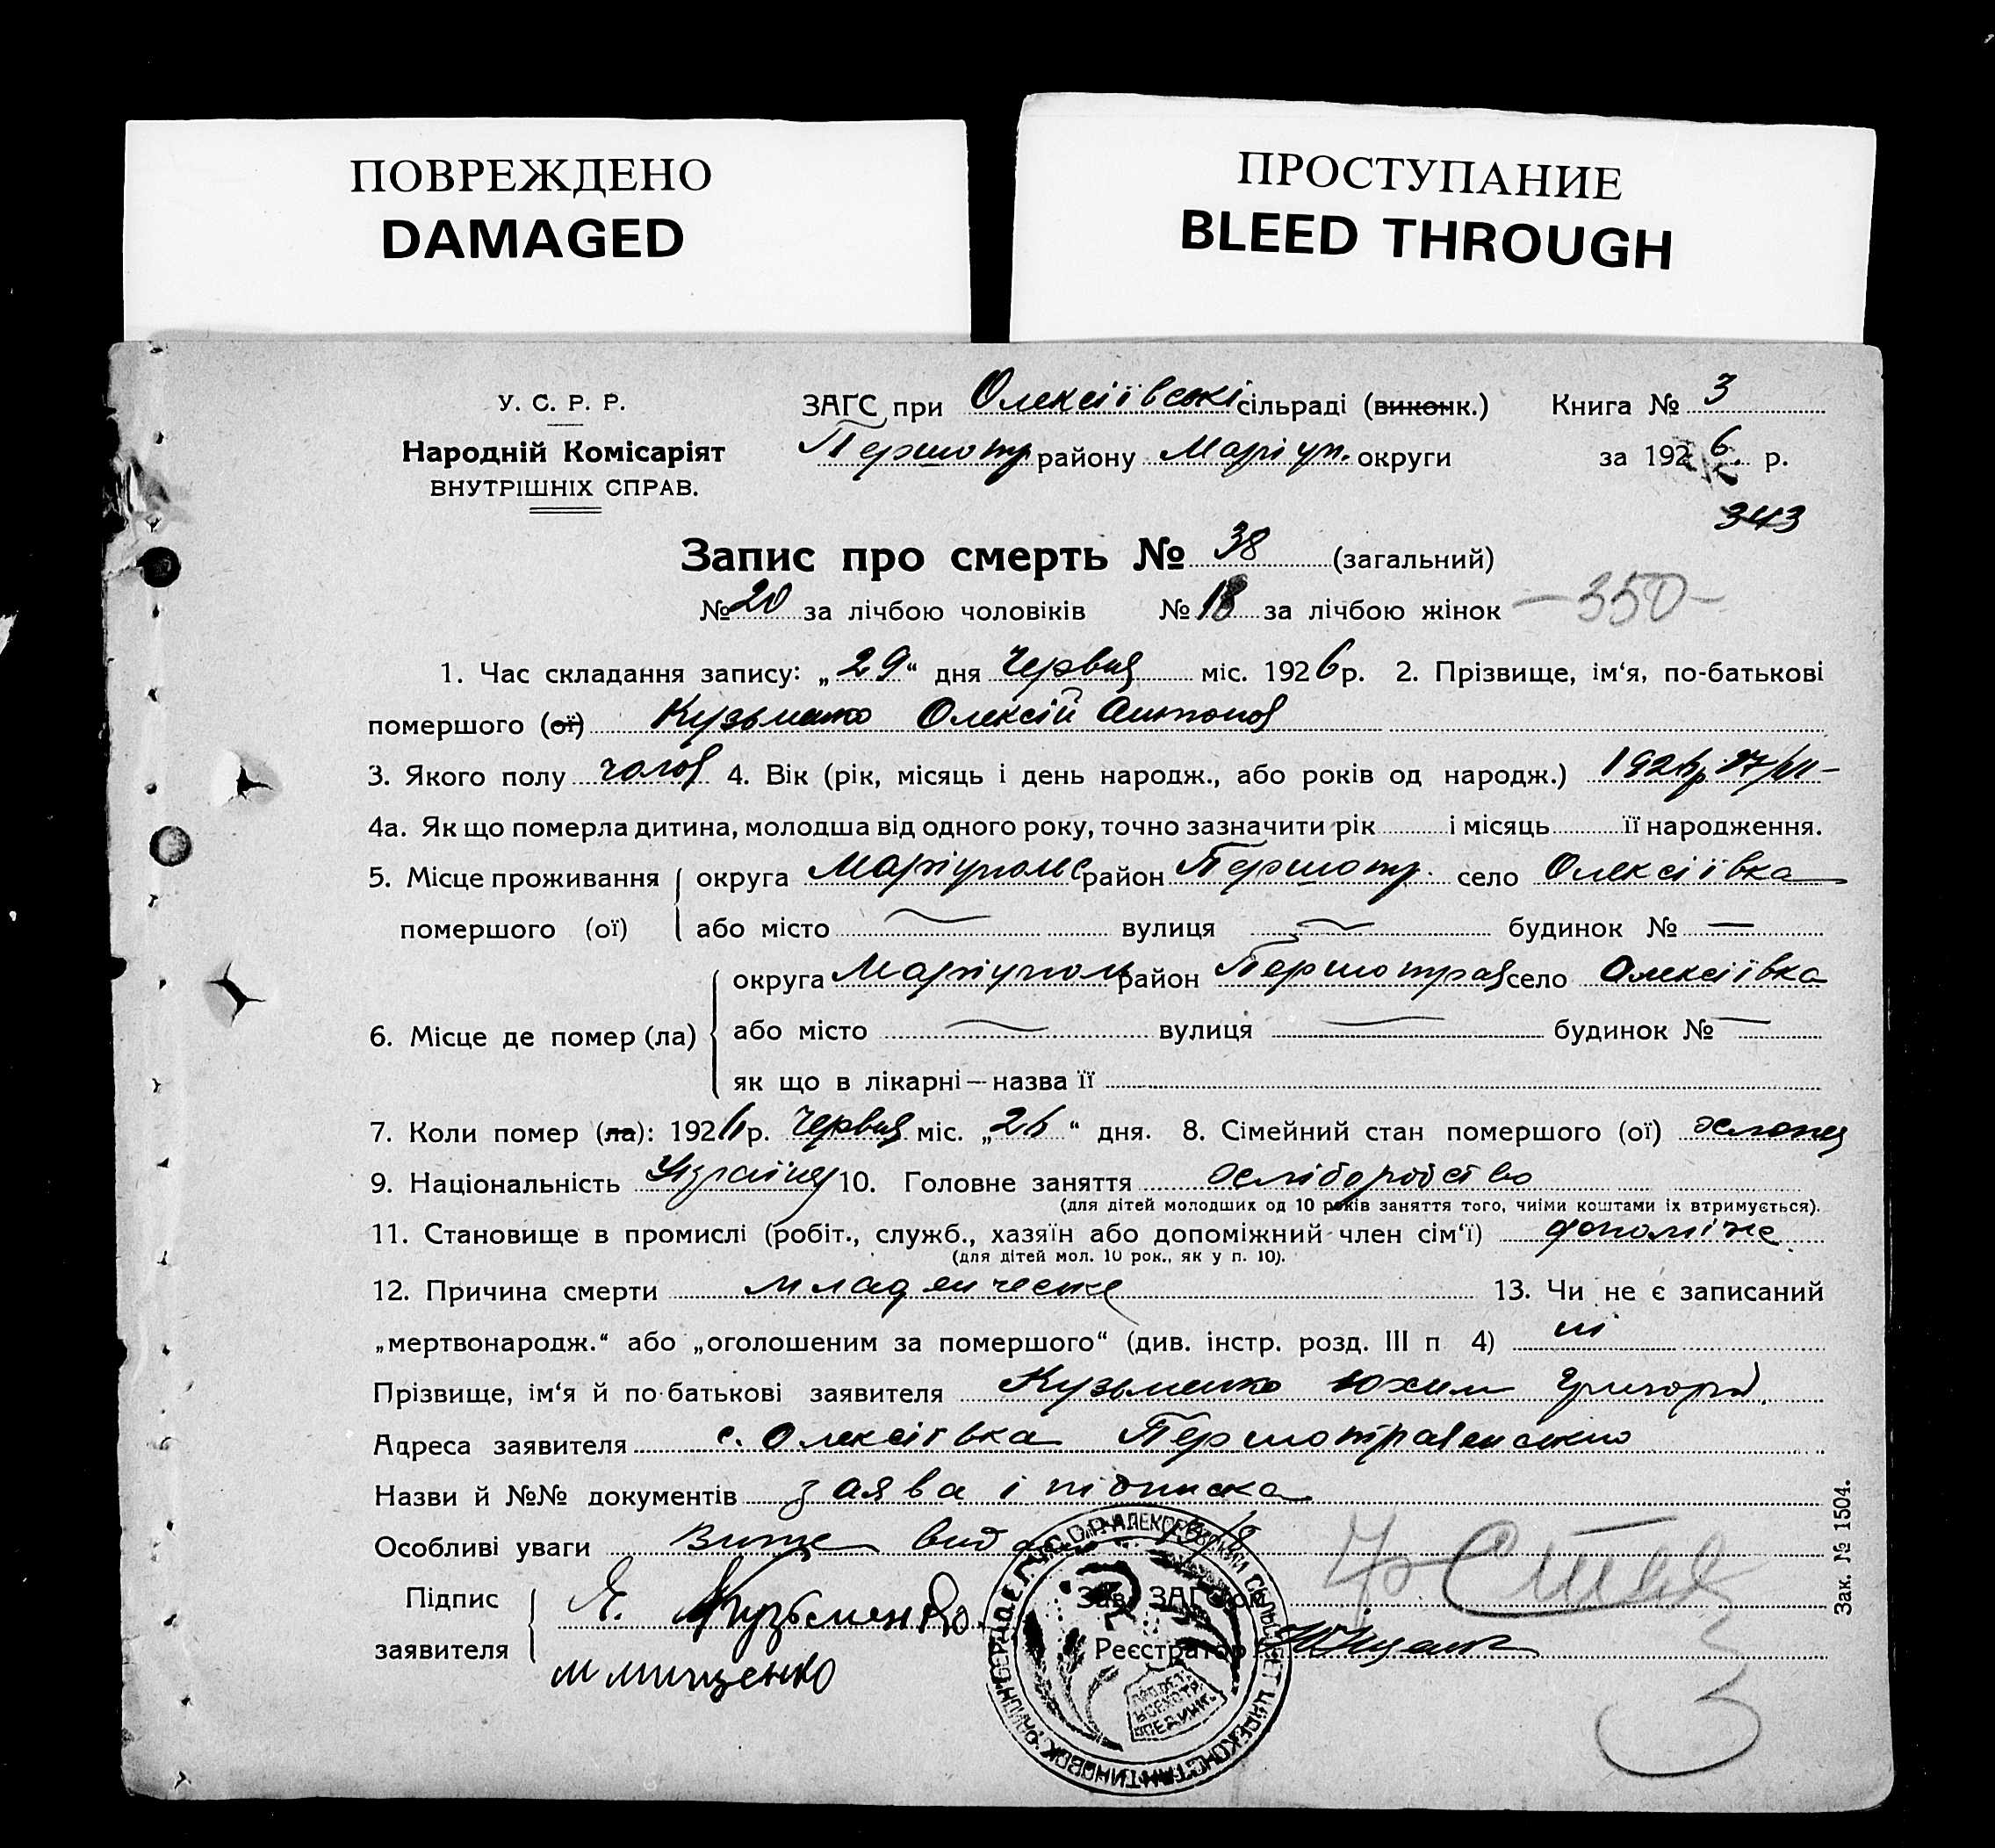 ПОВРЕЖДЕНО
DAMAGED
ПРОСТУПАНИЕ
BLEED THROUGH
У. С. Р. Р.
Народній Комісаріят
ВНУТРІШНІХ СПРАВ.
ЗАГС при Олексіївські сільраді (виконк.) Книга № 3
Першотр району Маріуп. округи за 1926 р.
343
Запис про смерть № 38 (загальний)
№ 20 за лічбою чоловіків № 18 за лічбою жінок
—350—
1. Час складання запису: „29“ дня Червня міс. 1926 р. 2. Прізвище, ім‘я, по-батькові
помершого (ої) Кузьменко Олексій Антонов
3. Якого полу чолов 4. Вік (рік, місяць і день народж., або років од народж.)
4а. Як що померла дитина, молодша від одного року, точно зазначити рік і місяць її народження.
5. Місце проживання помершого (ої) округа Маріупольс район Першотр. село Олексіївка
або місто — вулиця — будинок № —
6. Місце де помер (ла) округа Маріуполь район Першотрав село Олексіївка
або місто — вулиця — будинок № —
як що в лікарні — назва її
7. Коли помер (ла): 1926 р. Червня міс. „26“ дня. 8. Сімейний стан помершого (ої)
9. Національність Україне 10. Головне заняття хліборобство
(для дітей молодших од 10 років заняття того, чиїми коштами їх втримується).
11. Становище в промислі (робіт., служб., хазяїн або допоміжний член сім‘ї) допоміже
(для дітей мол. 10 рок., як у п. 10).
12. Причина смерти младенческе 13. Чи не є записаний
„мертвонародж.“ або „оголошеним за помершого“ (див. інстр. розд. III п 4) ні
Прізвище, ім‘я й по-батькові заявителя Кузьменко Юхим Григоров
Адреса заявителя с. Олексіївка Першотравенського
Назви й №№ документів заява і підписка
Особливі уваги
Підпис заявителя Я. Кузьменко
М Мищенко
Зав. ЗАГС'ом
Реєстратор
Зак. № 1504.